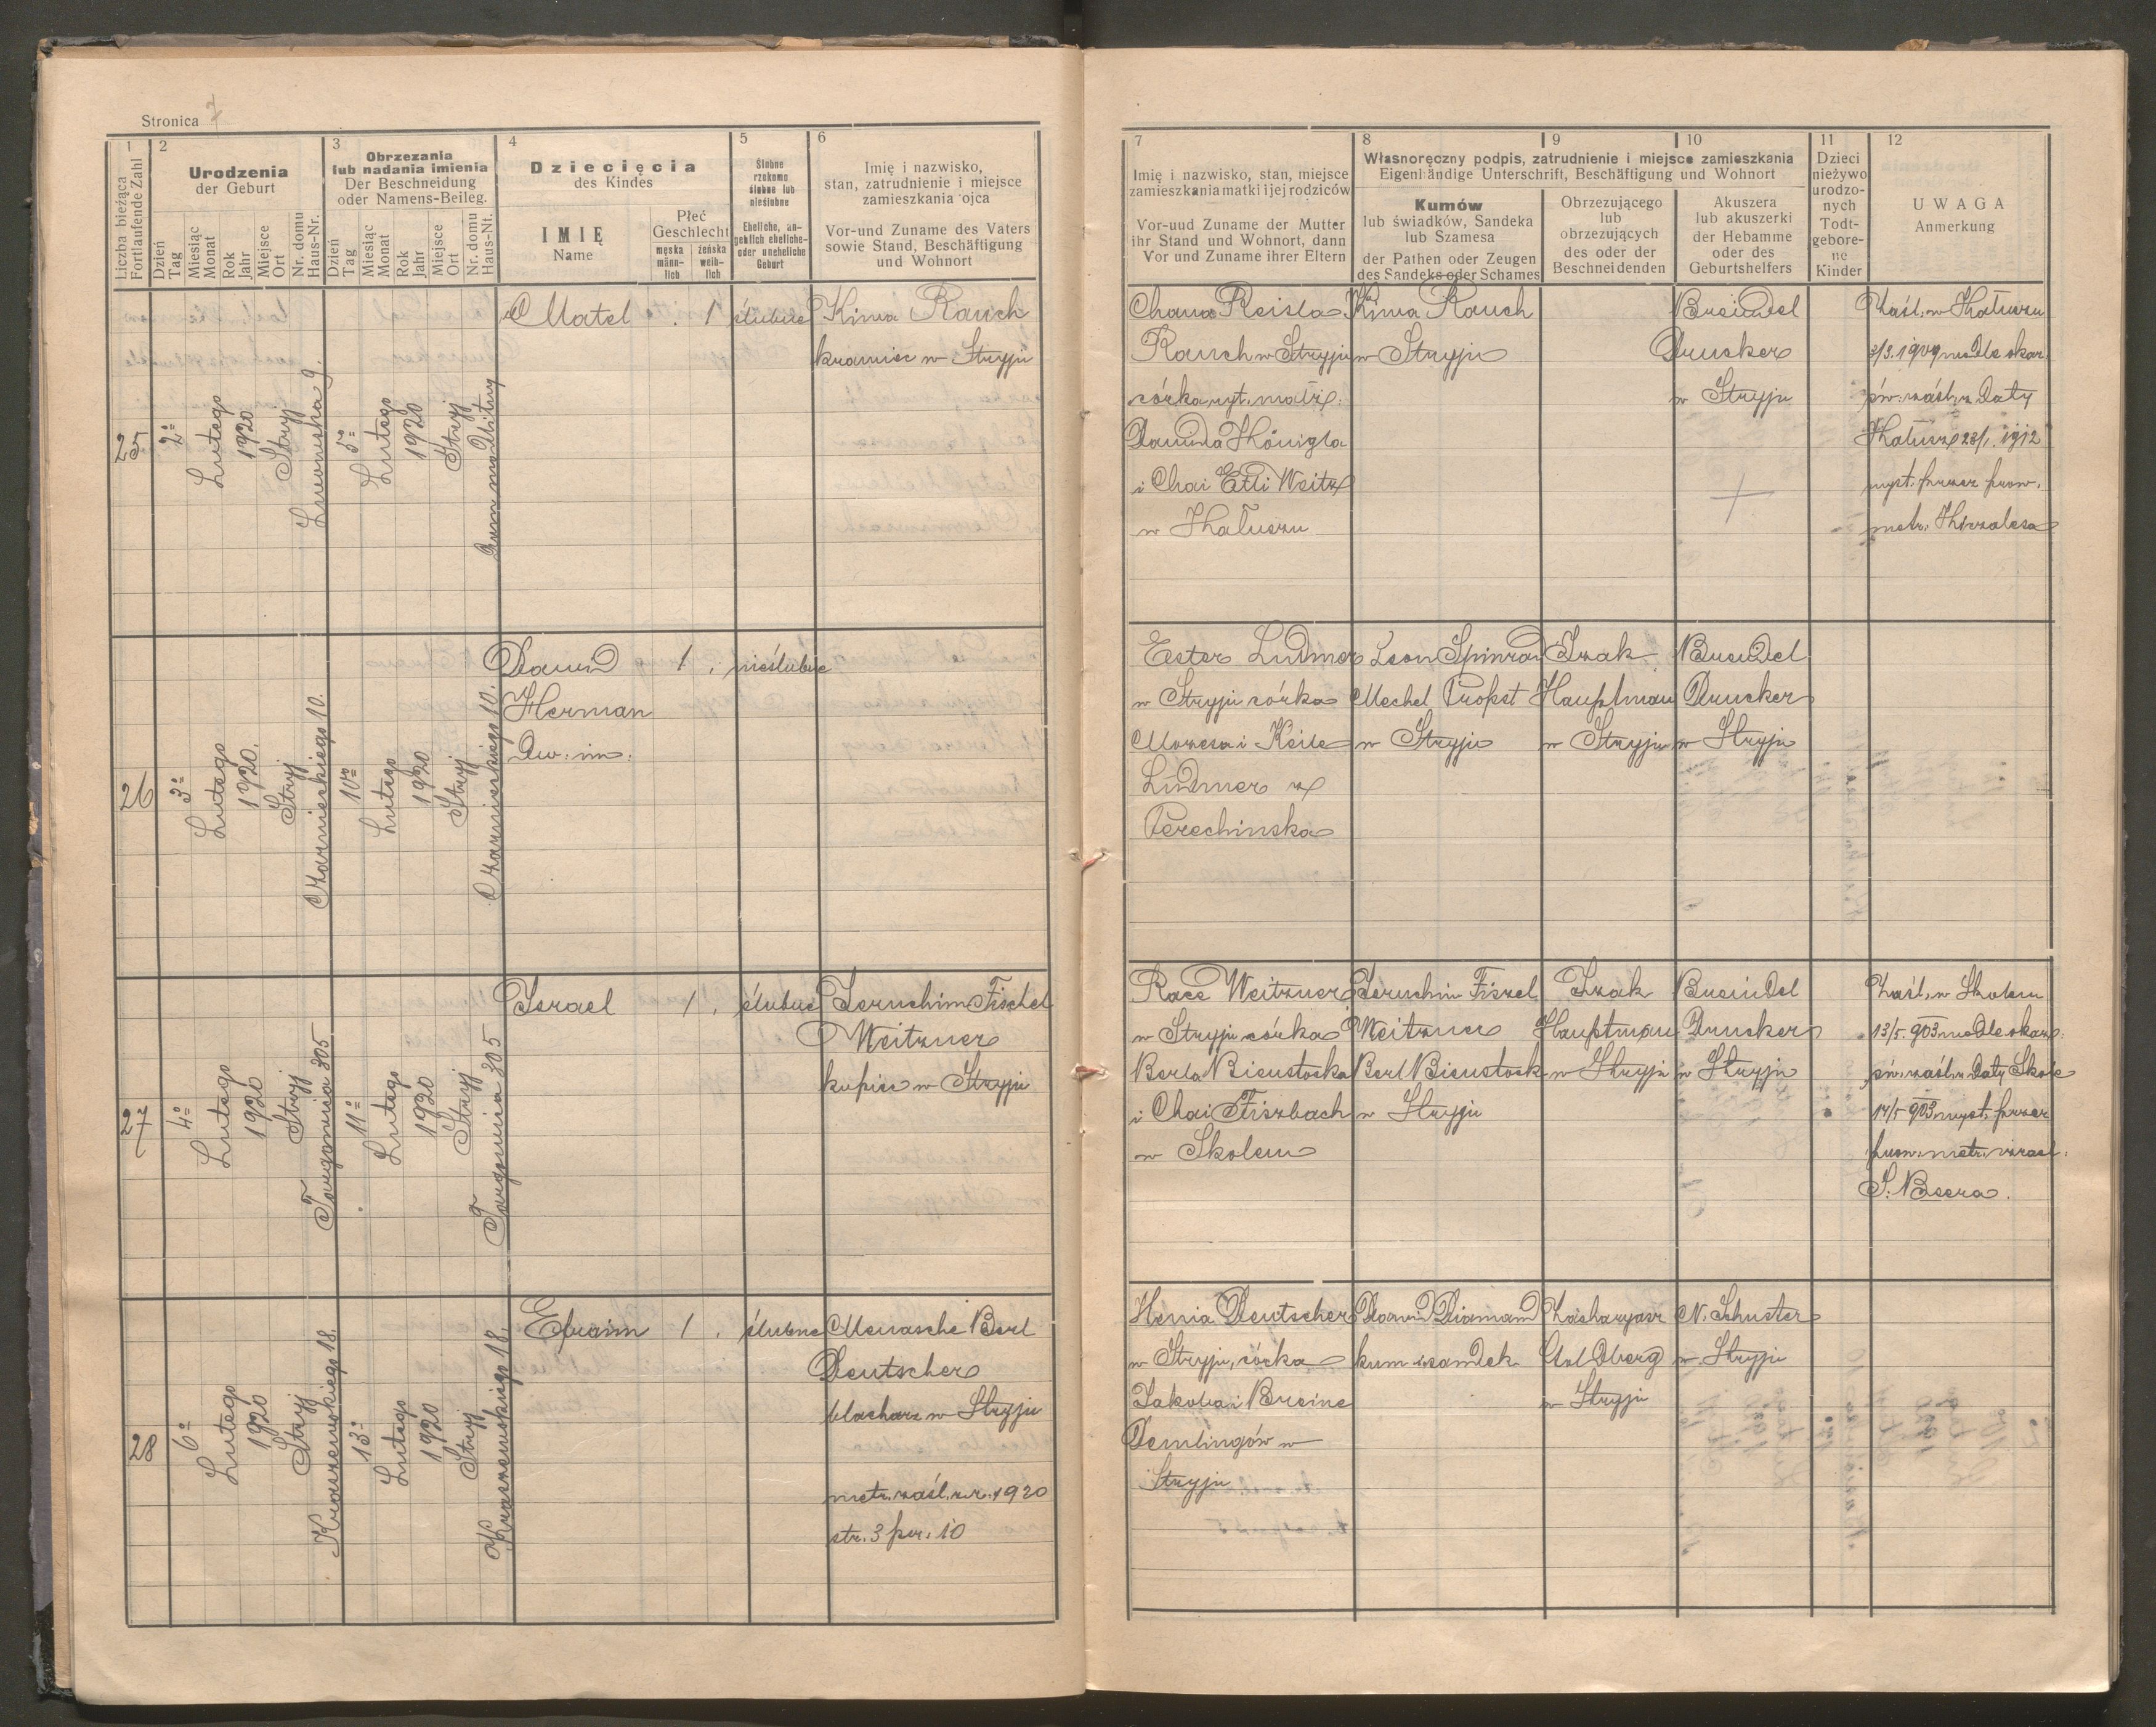 Stronica 7
1
Liczba bieżąca
Fortlaufende Zahl
2
Urodzenia
der Geburt
Dzień
Tag
Miesiąc
Monat
Rok
Jahr
Miejsce
Ort
Nr. domu
Haus-Nr.
3
Obrzezania
lub nadania imienia
Der Beschneidung
oder Namens-Beileg.
Dzień
Tag
Miesiąc
Monat
Rok
Jahr
Miejsce
Ort
Nr. domu
Haus-Nt.
4
Dziecięcia
des Kindes
IMIĘ
Name
Płeć
Geschlecht
męska
männ-
lich
żeńska
weib-
lich
5
Ślubne
rzekomo
ślubne lub
nieślubne
Eheliche, an-
geblich eheliche-
oder uneheliche
Geburt
6
Imię i nazwisko,
stan, zatrudnienie i miejsce
zamieszkania ojca
Vor-und Zuname des Vaters
sowie Stand, Beschäftigung
und Wohnort
7
Imię i nazwisko, stan, miejsce
zamieszkania matki i jej rodziców
Vor-uud Zuname der Mutter
ihr Stand und Wohnort, dann
Vor und Zuname ihrer Eltern
8
9
10
Własnoręczny podpis, zatrudnienie i miejsce zamieszkania
Eigenhändige Unterschrift, Beschäftigung und Wohnort
Kumów
lub świadków, Sandeka
lub Szamesa
der Pathen oder Zeugen
des Sandeks oder Schames
Obrzezującego
lub
obrzezujących
des oder der
Beschneidenden
Akuszera
lub akuszerki
der Hebamme
oder des
Geburtshelfers
11
Dzieci
nieżywo
urodzo-
nych
Todt-
gebore-
ne
Kinder
12
UWAGA
Anmerkung
25
2º
Lutego
1920
Stryj
Lwowska 9.
5º
Lutego
1920
Stryj
Dom modlitwy
Matel . 1
ślubne
Kiwa Rauch
kramisc w Stryju
Chana Reisla
Rauch w Stryju
córka ryt. małż.
Dawida Königla
i Chai Etli Weitz
w Kałuszu
Kiwa Rauch
w Stryju
Breindel
Drucker
w Stryju
Zaśl. w Kałuszu
3/3. 1909 medle okaz.
św. zaśl. z daty
Kałusz 23/1. 1912
wyst. przez prow.
metr.
26
3º
Lutego
1920.
Stryj
Czarnieckiego 10.
10º
Lutego
1920
Stryj
Czarnieckiego 10.
Dawid
Herman
Dw: im:
1 .
nieślubne
Ester Ludmer
w Stryju córka
Mozesa i Keile
Ludmer z
Perechinska
Leon Spinrad
Mechel Propst
w Stryju
Izak
Hauptman
w Stryju
Breindel
Drucker
w Stryju
27
4º
Lutego
1920
Stryj
Targowica 305
11º
Lutego
1920
Stryj
Targowica 305
Israel
1 .
ślubne
Jeruchim Fischel
Weitzner
kupiec w Stryju
Race Weitzner
w Stryju córka
Berla Bienstocka
i Chai Fiszbach
w Skolem
Jeruchim Fiszel
Weitzner
Berl Bienstock
w Stryju
Izak
Hauptman
w Stryju
Breindel
Drucker
w Stryju
Zaśl. w Skolem
13/5. 903 medle okaz.
św. zaśl. z daty Skole
14/5 903 wyst. przez
prow. metr. izrael.
S. Beera.
28
6º
Lutego
1920
Stryj
Kraszewskiego 18.
13º
Lutego
1920
Stryj
Kraszewskiego 18.
Efraim
1 .
ślubne
Menasche Berl
Deutscher
blacharz w Stryju
metr. zaśl. z r. 1920
str. 3 poz. 10
Henia Deutscher
w Stryju, córka
Jakoba i Breine
Demlingów w
Stryju
Dawid Diamand
kum i sandek
Zacharyasz
Goldberg
w Stryju
N. Schuster
w Stryju